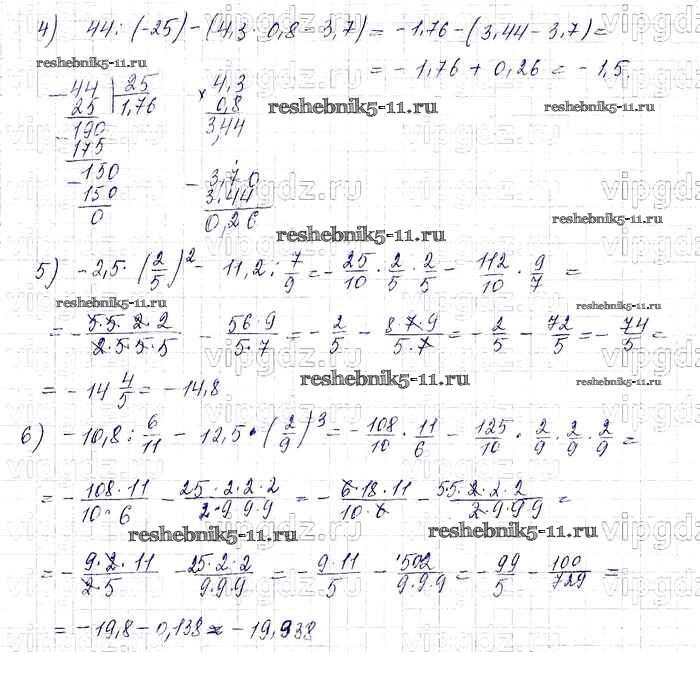 4) 44 : (-25) - (4,3 · 0,8 - 3,7) = -1,76 - (3,44 - 3,7) =
reshebnik5-11.ru
= -1,76 + 0,26 = -1,5.
- 44 | 25
25 | 1,76
- 190
175
- 150
150
0
× 4,3
0,8
3,44
reshebnik5-11.ru
reshebnik5-11.ru
- 3,70
3.44
0,26
vipgdz.ru
reshebnik5-11.ru
reshebnik5-11.ru
5) -2,5 · (2/5)² - 11,2 : 7/9 = - 25/10 · 2/5 · 2/5 - 112/10 · 9/7 =
reshebnik5-11.ru
reshebnik5-11.ru
= - 5·5·2·2/2·5·5·5 - 56·9/5·7 = - 2/5 - 8·7·9/5·7 = - 2/5 - 72/5 = - 74/5 =
= - 14 4/5 = -14,8
reshebnik5-11.ru
reshebnik5-11.ru
6) -10,8 : 6/11 - 12,5 · (2/9)³ = - 108/10 · 11/6 - 125/10 · 2/9 · 2/9 · 2/9 =
= - 108·11/10·6 - 25·2·2·2/2·9·9·9 = - 6·18·11/10·6 - 55·2·2·2/2·9·9·9 =
reshebnik5-11.ru
reshebnik5-11.ru
= - 9·2·11/2·5 - 25·2·2/9·9·9 = - 9·11/5 - /9·9·9 = - 99/5 - 100/729 =
= -19,8 - 0,138 ≈ -19,938
vipgdz.ru